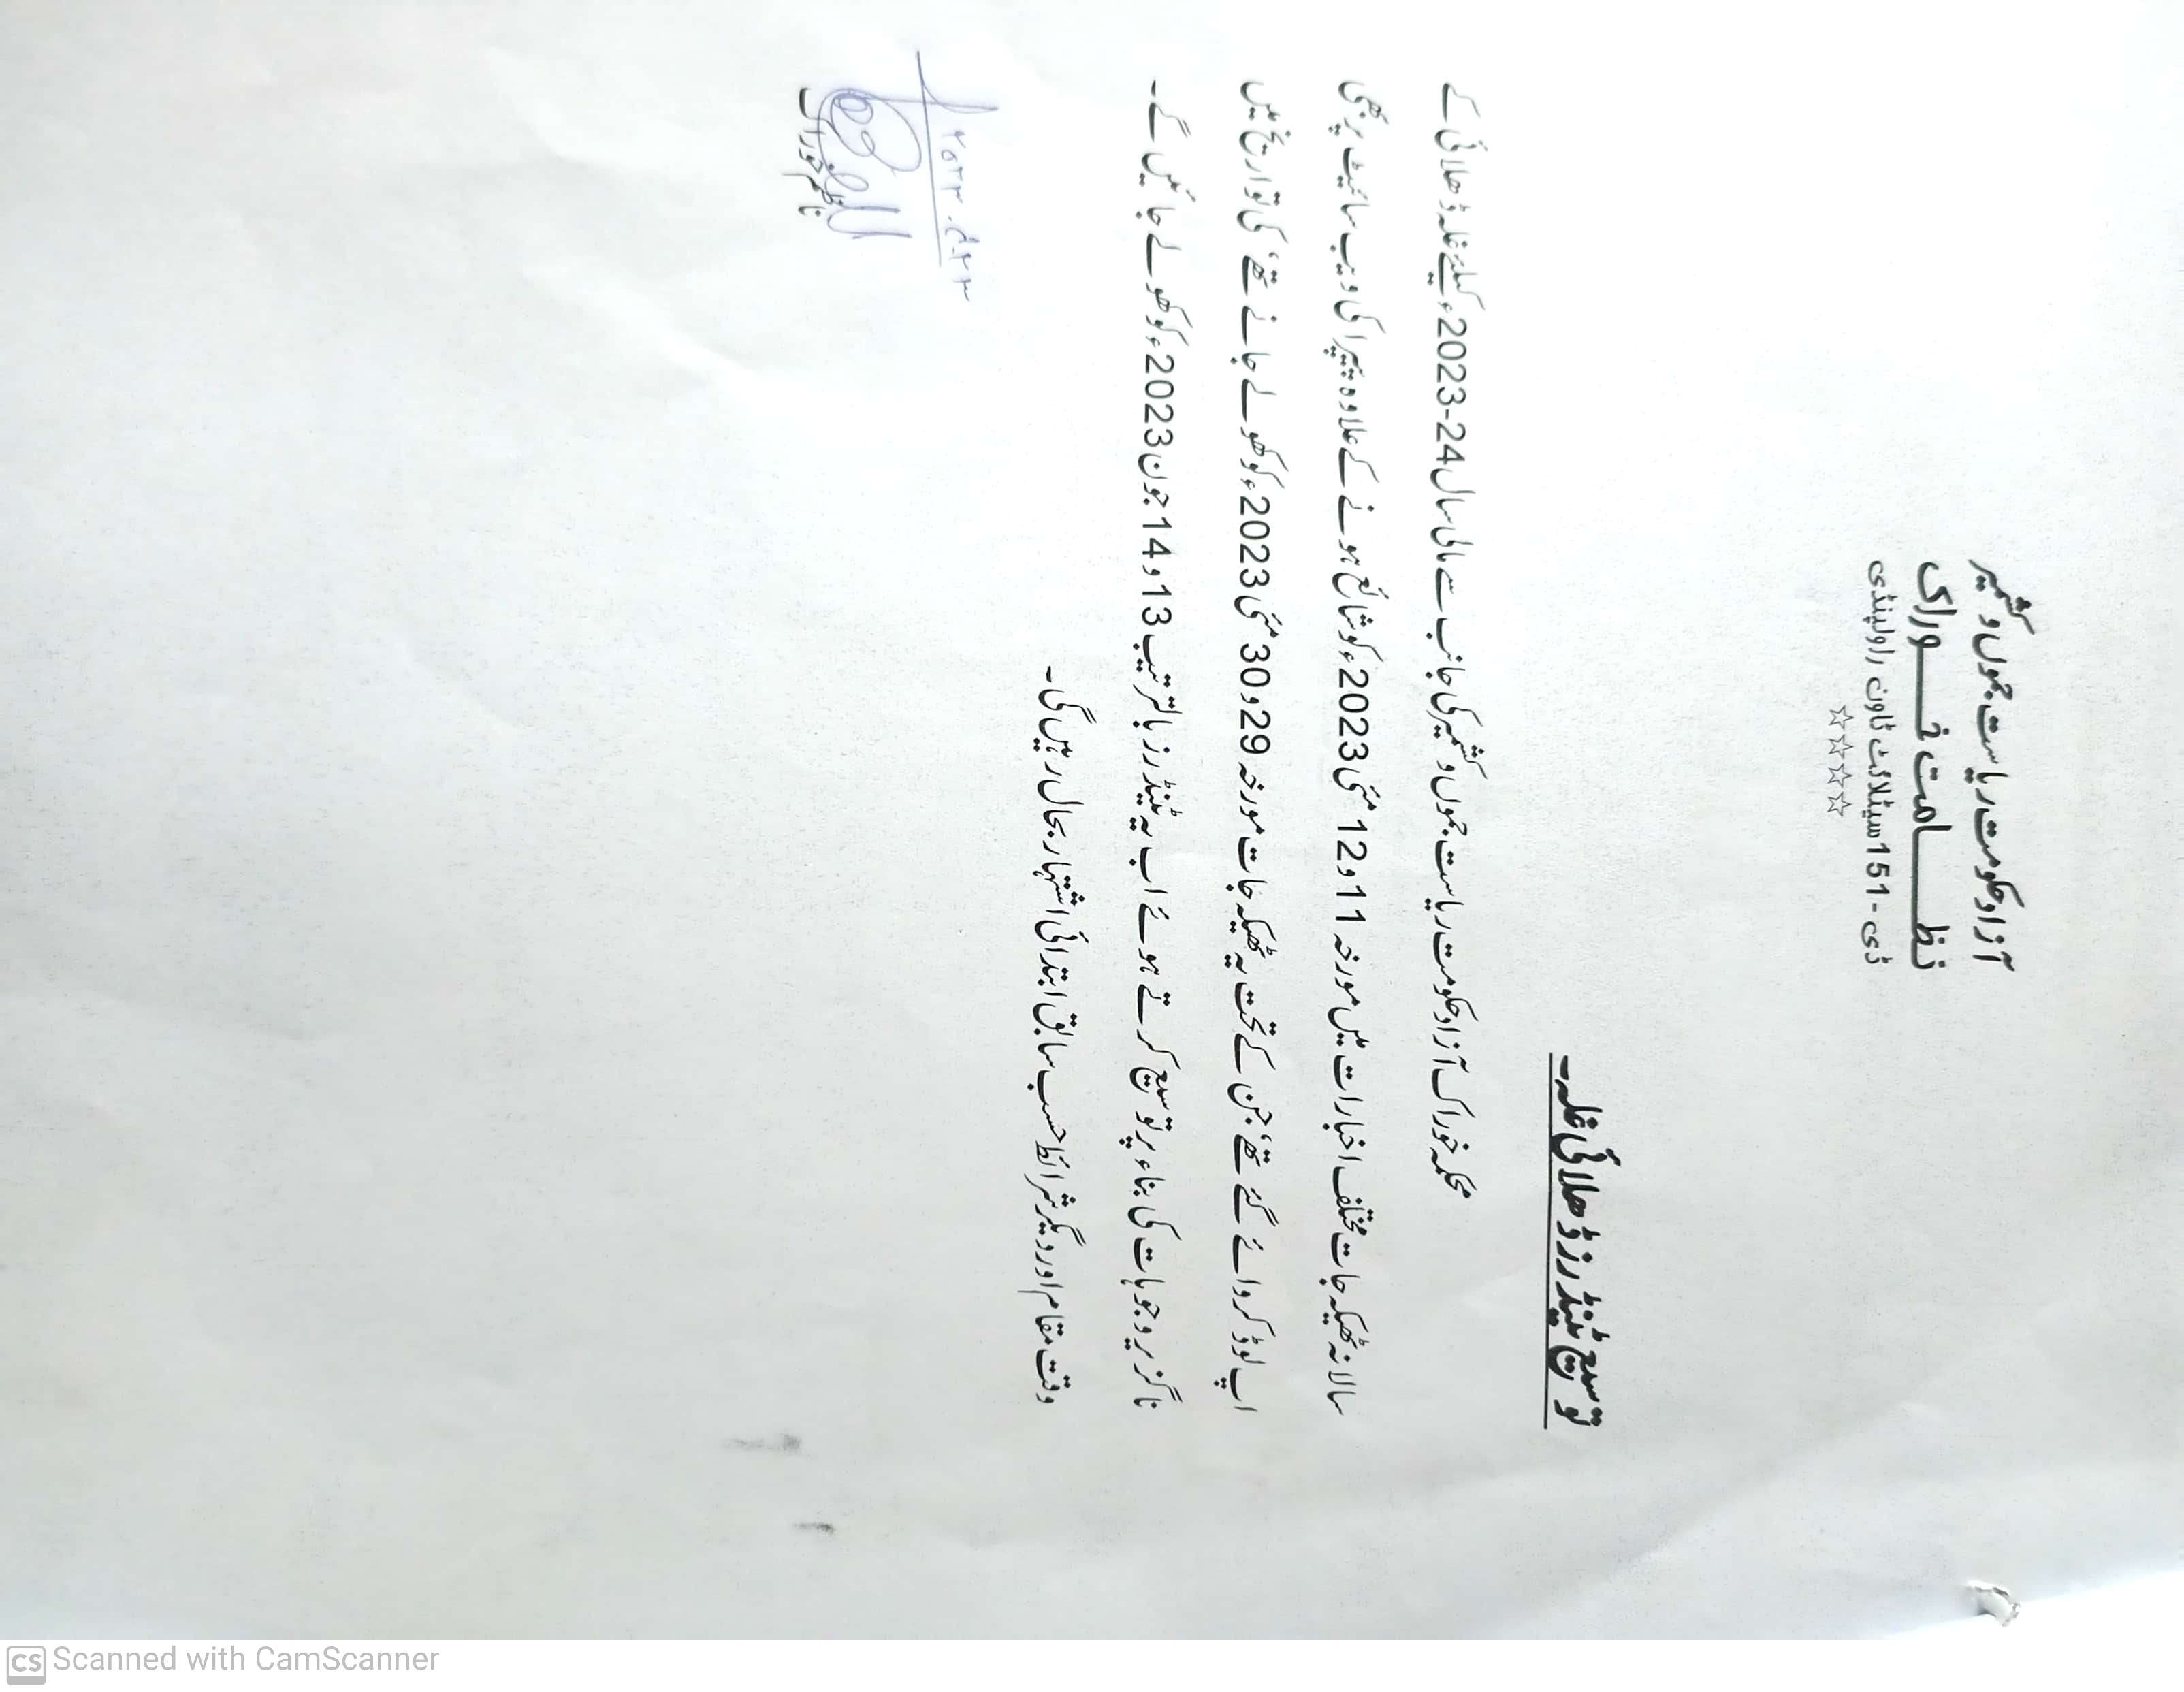 آزاد حکومت ریاست جموں و کشمیر
نظامت خوراک
ڈی-151 سیٹلائٹ ٹاؤن راولپنڈی
☆☆☆☆
توسیع ٹینڈرز ڈھلائی غلہ۔
محکمہ خوراک آزاد حکومت ریاست جموں و کشمیر کی جانب سے مالی سال 24-2023ء کیلئے غلہ ڈھلائی کے
سالانہ ٹھیکہ جات مختلف اخبارات میں مورخہ 11 و 12 مئی 2023ء کو شائع ہونے کے علاوہ پیپرا کی ویب سائیٹ پر بھی
اپ لوڈ کروائے گئے تھے، جن کے تحت یہ ٹھیکہ جات مورخہ 29 و 30 مئی 2023ء کو کھولے جانے تھے، کی تواریخ میں
ناگزیر وجوہات کی بناء پر توسیع کرتے ہوئے اب یہ ٹینڈرز بالترتیب 13 و 14 جون 2023ء کو کھولے جائیں گے۔
وقت مقام اور دیگر شرائط حسب سابق ابتدائی اشتہار بحال رہیں گی۔
ناظم خوراک
CS Scanned with CamScanner